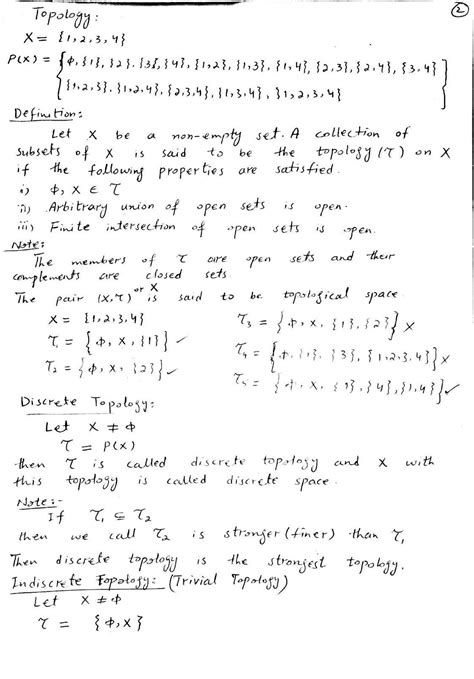 ②
Topology:
X = {1,2,3,4}
P(X) = {ϕ,{1},{2},{3},{4},{1,2},{1,3},{1,4},{2,3},{2,4},{3,4}
{1,2,3},{1,2,4},{2,3,4},{1,3,4},{1,2,3,4}}
Definition:
Let X be a non-empty set. A collection of
subsets of X is said to be the topology (τ) on X
if the following properties are satisfied.
i) ϕ, X ∈ τ
ii) Arbitrary union of open sets is open.
iii) Finite intersection of open sets is open.
Note:
The members of τ are open sets and their
complements are closed sets
The pair (X,τ) or X is said to be topological space
X = {1,2,3,4}
τ₁ = {ϕ, X, {1}} ✓
τ₂ = {ϕ, X, {2}} ✓
τ₃ = {ϕ, X, {1}, {2}} X
τ₄ = {ϕ, {1}, {3}, {1,2,3,4}} X
τ₅ = {ϕ, X, {1}, {4}, {1,4}} ✓
Discrete Topology:
Let X ≠ ϕ
τ = P(X)
then τ is called discrete topology and X with
this topology is called discrete space.
Note:-
If τ₁ ⊆ τ₂
then we call τ₂ is stronger (finer) than τ₁
Then discrete topology is the strongest topology.
Indiscrete Topology: (Trivial Topology)
Let X ≠ ϕ
τ = {ϕ,X}